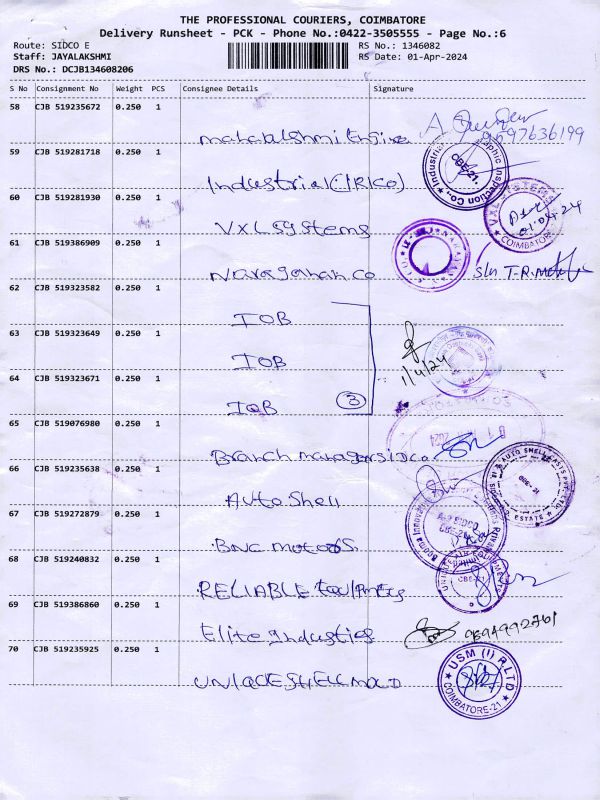 THE PROFESSIONAL COURIERS, COIMBATORE
Delivery Runsheet - PCK - Phone No.:0422-3505555 - Page No.:6
Route: SIDCO E
RS No.: 1346082
Staff: JAYALAKSHMI
RS Date: 01-Apr-2024
DRS No.: DCJB134608206
S No Consignment No Weight PCS Consignee Details Signature
58 CJB 519235672 0.250 1
Mahalakshmi Engine
9597636199
59 CJB 519281718 0.250 1
Industrial (I) R) Co)
Industrial Graphic Inspection Co.,
CBE-21.
60 CJB 519281930 0.250 1
VXL Systems
VXL SYSTEMS
COIMBATORE
01.04.24
61 CJB 519386909 0.250 1
Narayanan Co
62 CJB 519323582 0.250 1
IOB
63 CJB 519323649 0.250 1
IOB
1/4/24
64 CJB 519323671 0.250 1
IOB
3
65 CJB 519076980 0.250 1
Branch manager SIDCO
66 CJB 519235638 0.250 1
Auto Shell
ESTATE
67 CJB 519272879 0.250 1
BNC motors
68 CJB 519240832 0.250 1
RELIABLE
CBE-21
69 CJB 519386860 0.250 1
Elite Industies
9894992761
70 CJB 519235925 0.250 1
UNIQUE SHELL MOLD
USM (I) P LTD
COIMBATORE-21